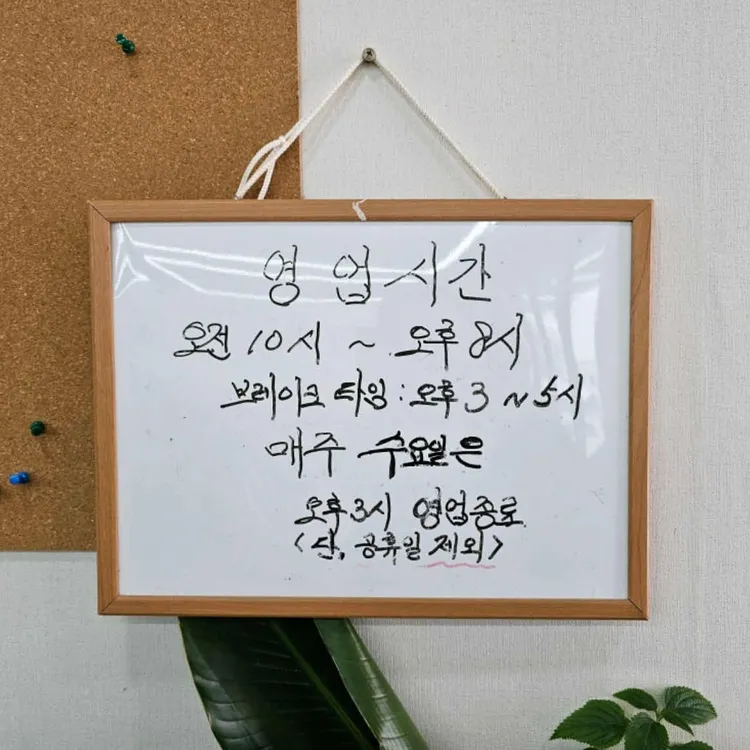 영업시간
오전 10시 ~ 오후 8시
브레이크 타임 : 오후 3 ~ 5시
매주 수요일은
오후 3시 영업종료
<단, 공휴일 제외>